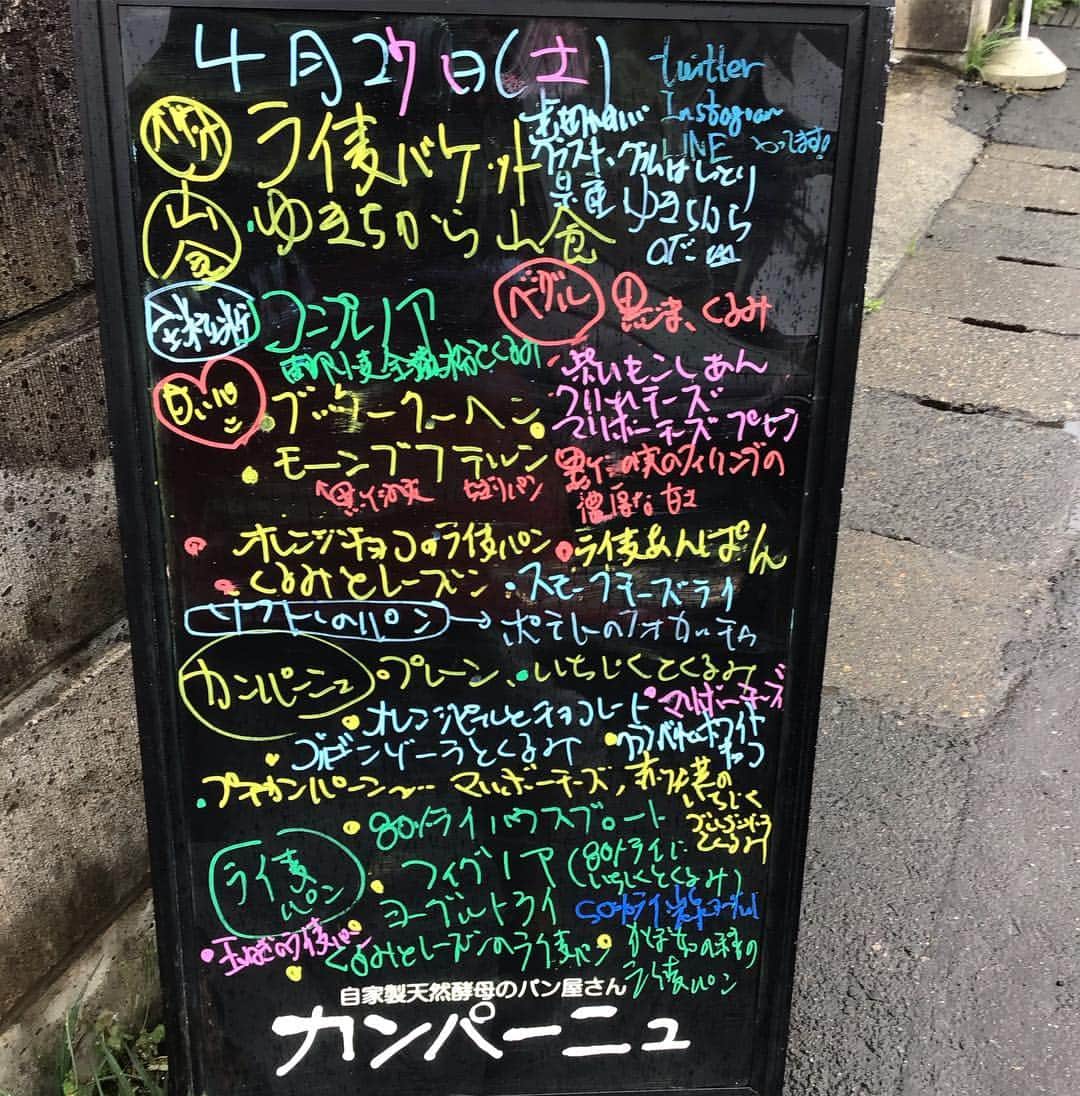 4月27日(土)
twitter
Instagram
LINE やってます!
バゲット
ライ麦バケット
県産ゆきちから
山食
・ゆきちから山食
コンプレノア
ベーグル
黒ごま、くるみ
紫いもこしあん
甘いパン
ブッタークーヘン
クリームチーズ
マリボーチーズ
モーンプフテルン
黒ケシの実のフィリングの
濃厚な甘さ
黒ケシの実 ちぎりパン
・オレンジチョコのライ麦パン
・ライ麦あんぱん
・くるみとレーズン
・スモークチーズライ
ソフト系のパン→ポテトのフォカッチャ
カンパーニュ
・プレーン、・いちじくとくるみ
・マリボーチーズ
・オレンジピールとチョコレート
・ゴルゴンゾーラとくるみ
ホワイトチョコ
・プチカンパーニュ… マリボーチーズ,
いちじく
くるみ
ライ麦パン
・80%ライ ハウスブロート
・フィグノア(80%ライに
いちじくとくるみ)
・ヨーグルトライ
・玉ねぎのライ麦パン
・くるみとレーズンのライ麦パン
・かぼちゃの種の
ライ麦パン
自家製天然酵母のパン屋さん
カンパーニュ